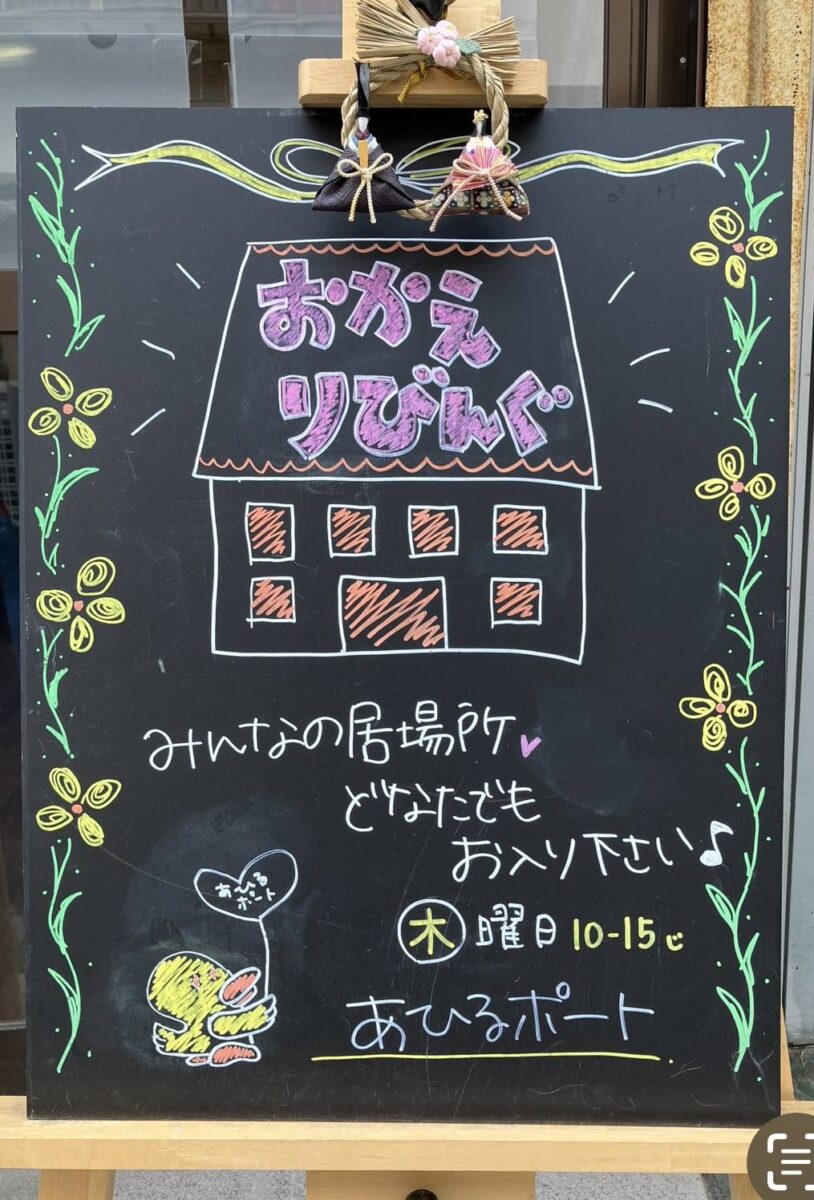 おかえ
りびんぐ
みんなの居場所
どなたでも
お入り下さい♪
木曜日 10-15じ
あひる
ポート
あひるポート